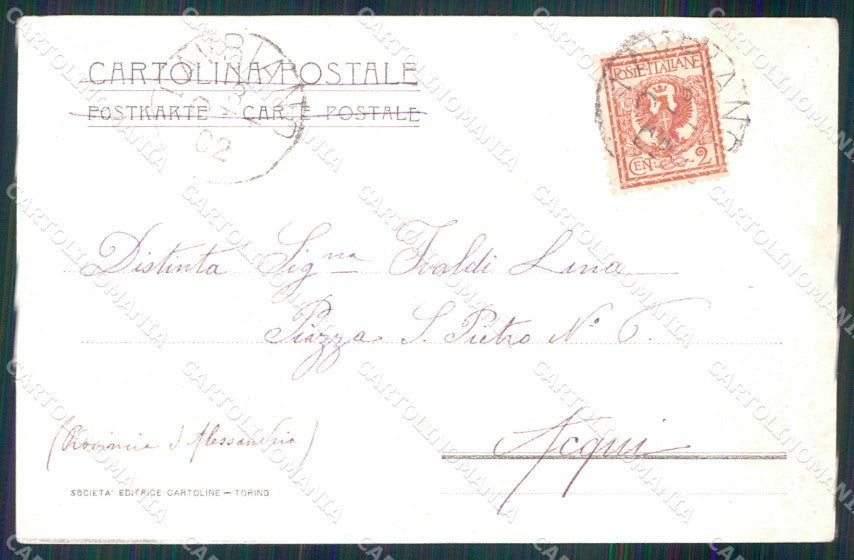 CARTOLINA POSTALE
POSTKARTE - CARTE POSTALE
02
POSTE ITALIANE
CEN 2
Distinta Sig.na Ivaldi Lina
Piazza S. Pietro N.° 6.
Acqui
(Provincia d'Alessandria)
SOCIETA' EDITRICE CARTOLINE — TORINO
CARTOLINOMANIA